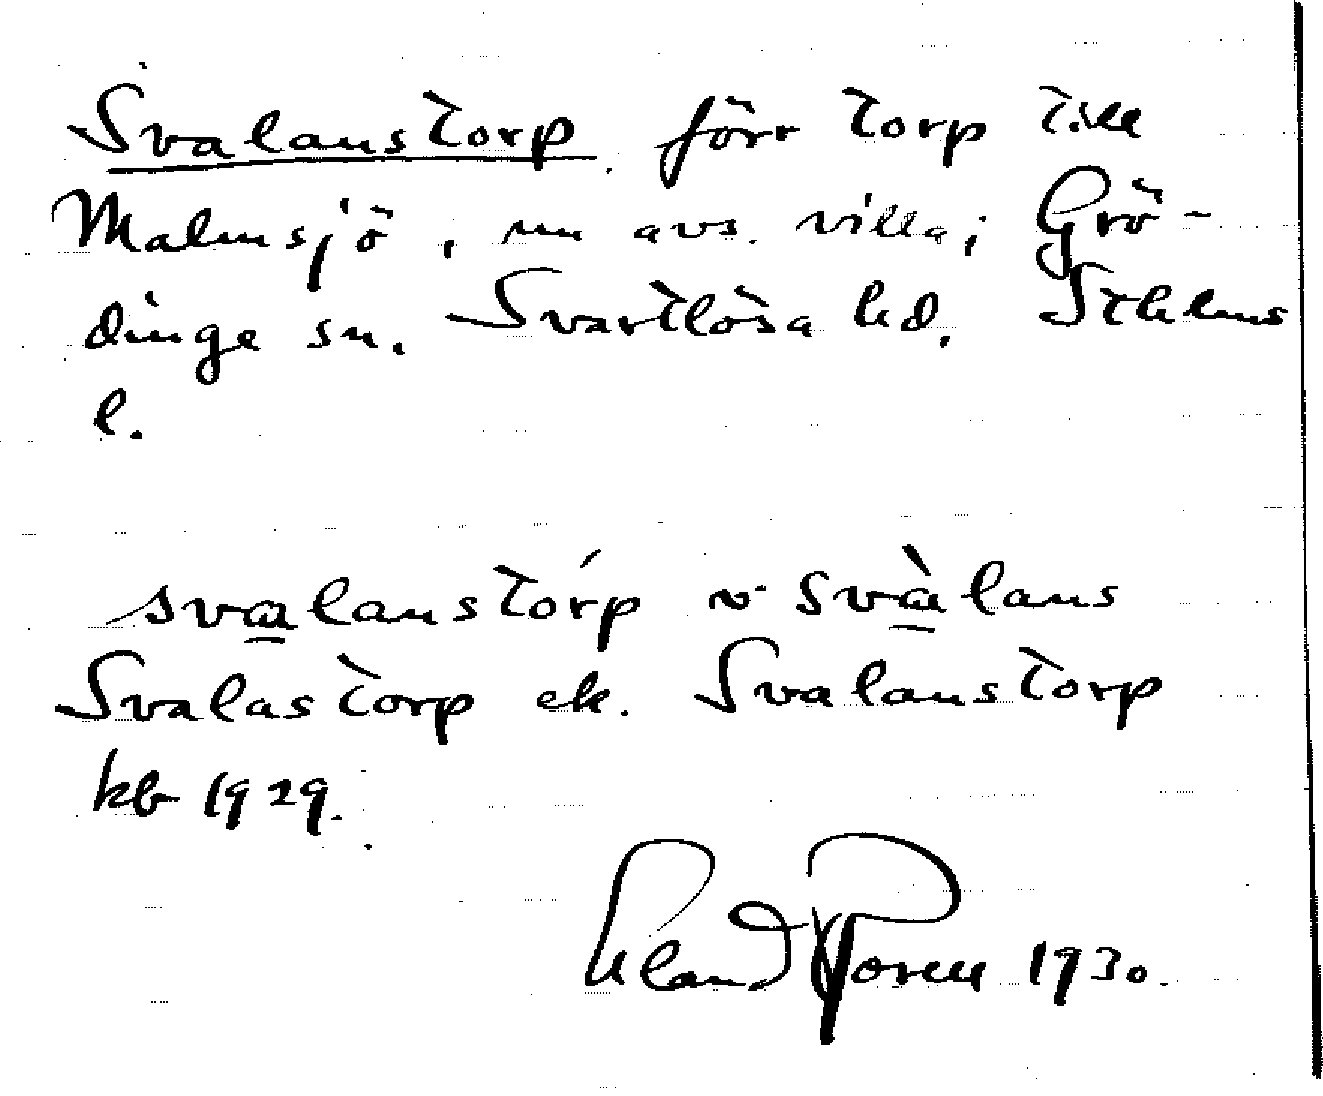 Svalanstorp förr torp till
Malmsjö, nu avs. villa; Grö-
dinge sn. Svartlösa hd, Sthlms
l.
svalanstórp v svàlans
Svalastorp ek. Svalanstorp
kb 1929.
1930.